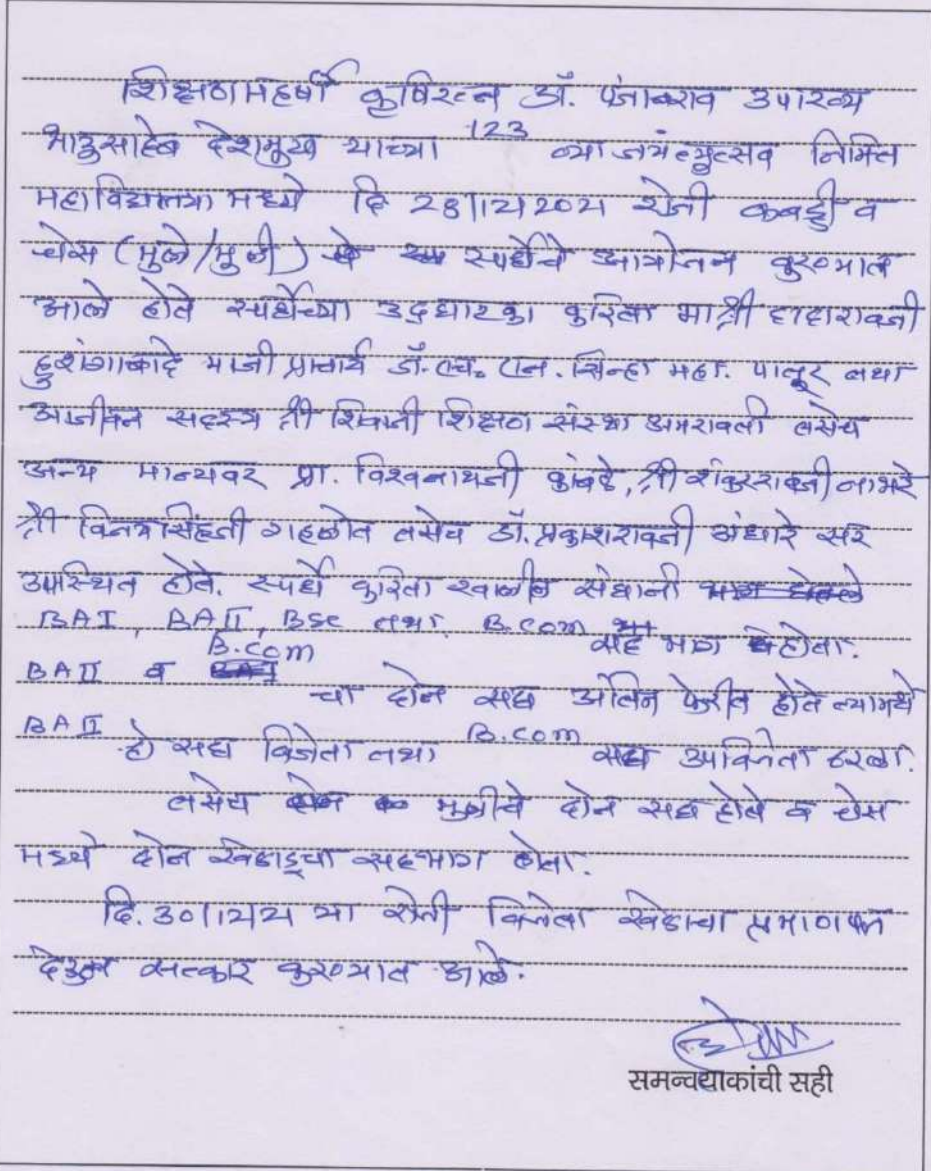 शिक्षण महर्षी कृषिरत्न डॉ. पंजाबराव उपाख्य
भाऊसाहेब देशमुख यांच्या 123 व्या जयंत्युत्सव निमित्त
महाविद्यालया मध्ये दि 28/12/2021 रोजी कबड्डी व
चेस (मुले/मुली) स्पर्धेचे आयोजन करण्यात
आले होते स्पर्धेच्या उद्घाटका करिता मा.श्री दादारावजी
हुशंगाबादे माजी प्राचार्य डॉ. एच. एन. सिन्हा महा. पातूर तथा
आजीवन सदस्य श्री शिवाजी शिक्षण संस्था अमरावती तसेच
अन्य मान्यवर प्रा. विश्वनाथजी कांबळे, श्री शंकररावजी नाभरे
श्री विनयसिंहजी गहलोत तसेच डॉ. प्रकाशरावजी अंधारे सर
उपस्थित होते. स्पर्धे करिता खालील संघानी
BAI, BAII, BSc तथा B.com सह भाग होता.
BAII व B.com चा दोन सघ अंतिम फेरीत होते त्यामध्ये
BAII हो सघ विजेता तथा B.com सघ उपविजेता ठरला.
तसेच मुलीचे दोन सघ होते व चेस
मध्ये दोन खेडाडूचा सहभाग होता.
दि. 30/12/21 या रोजी विजेता खेडाचा प्रमाणपत्र
देवुन सत्कार करण्यात आले.
समन्वयाकांची सही